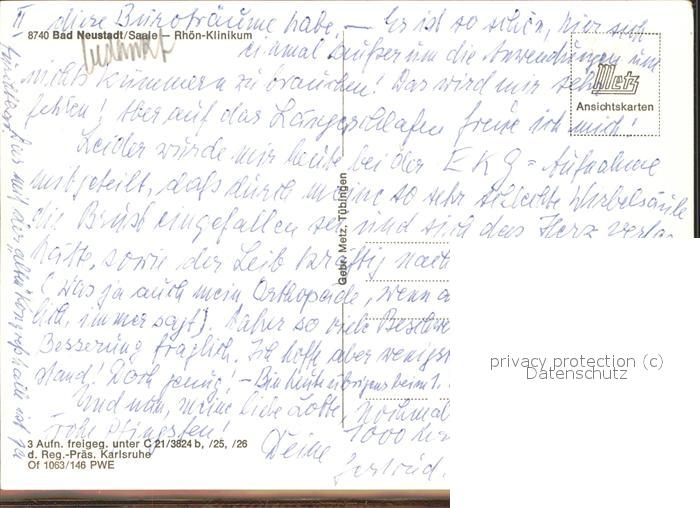 II diese Büroträume habe, – Es ist so schön, hier sich
8740 Bad Neustadt/Saale – Rhön-Klinikum
einmal außer um die Anwendungen um
nichts kümmern zu brauchen! Das wird mir sehr
fehlen! Aber auf das Längerschlafen freue ich mich!
Metz
Ansichtskarten
Leider wurde mir heute bei der EKG = Aufnahme
mitgeteilt, daß durch meine so sehr schlechte Wirbelsäule
die Brust eingefallen sei und sich das Herz verlag
hätte, sowie der Leib kräftig nach
(was ja auch mein Orthopäde, wenn a
lich, immer sagt). Daher so viele Beschw
Besserung fraglich. Ich hoffe aber wenigs
stand! Doch genug! – Bin heute übrigens beim 1.
Und nun, meine liebe Lotte, nochmal
Frohe Pfingsten! 1000
Deine
Gertrud.
Gebr. Metz, Tübingen
3 Aufn. freigeg. unter C 21/3824 b, /25, /26
d. Reg.-Präs. Karlsruhe
Of 1063/146 PWE
privacy protection (c)
Datenschutz